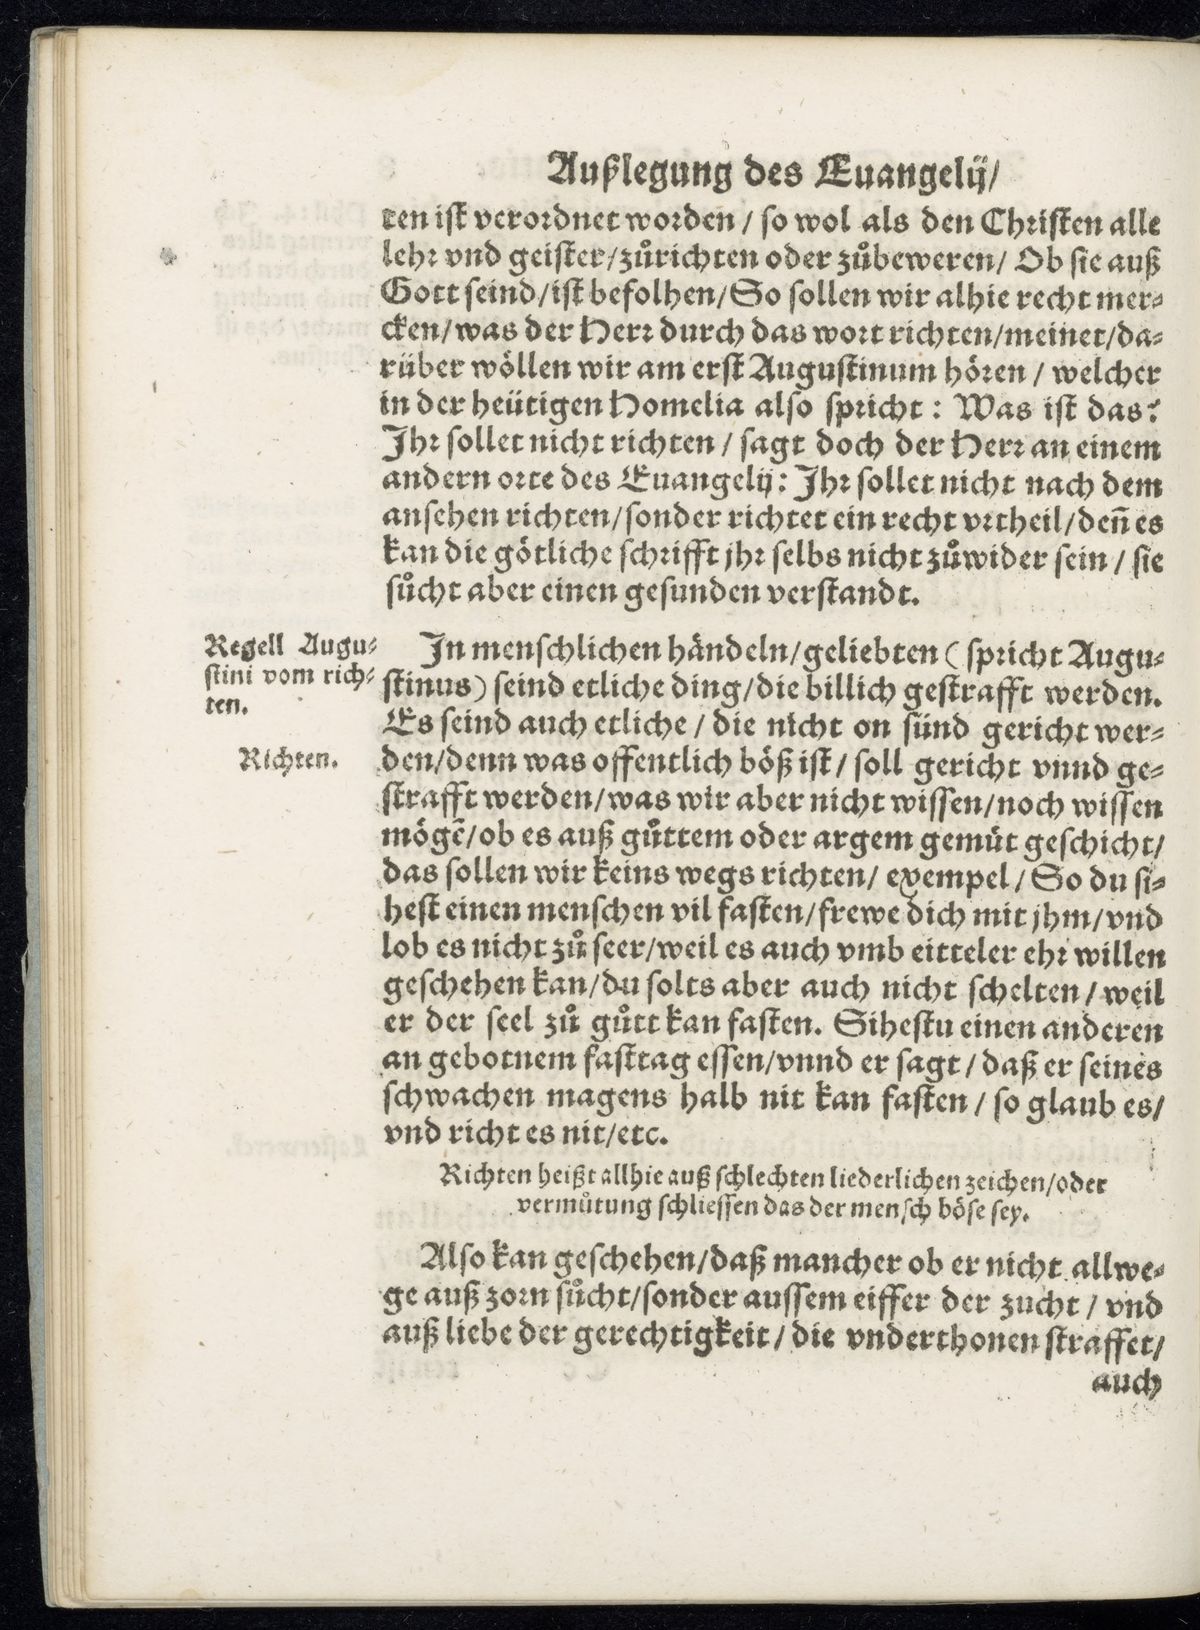 Außlegung des Euangelÿ/
ten ist verordnet worden / so wol als den Christen alle
lehr vnd geister/zůrichten oder zůbeweren/ Ob sie auß
Gott seind/ist befolhen/So sollen wir alhie recht mer⸗
cken/was der Herr durch das wort richten/meinet/da⸗
rüber wöllen wir am erst Augustinum hören / welcher
in der heütigen Homelia also spricht : Was ist das?
Ihr sollet nicht richten / sagt doch der Herr an einem
andern orte des Euangelÿ: Ihr sollet nicht nach dem
ansehen richten/sonder richtet ein recht vrtheil/deñ es
kan die götliche schrifft jhr selbs nicht zůwider sein / sie
sůcht aber einen gesunden verstandt.
Regell Augu⸗
stini vom rich⸗
ten.
In menschlichen händeln/geliebten ( spricht Augu⸗
stinus) seind etliche ding/die billich gestrafft werden.
Es seind auch etliche / die nicht on sünd gericht wer⸗
Richten.
den/denn was offentlich böß ist / soll gericht vnnd ge⸗
strafft werden/was wir aber nicht wissen/noch wissen
mögẽ/ob es auß gůttem oder argem gemüt geschicht/
das sollen wir keins wegs richten/ exempel / So du si⸗
hest einen menschen vil fasten/frewe dich mit jhm/vnd
lob es nicht zů seer/weil es auch vmb eitteler ehr willen
geschehen kan/du solts aber auch nicht schelten / weil
er der seel zů gůtt kan fasten. Sihestu einen anderen
an gebotnem fasttag essen/vnnd er sagt / daß er seines
schwachen magens halb nit kan fasten / so glaub es/
vnd richt es nit/etc.
Richten heißt allhie auß schlechten liederlichen zeichen/oder
vermůtung schliessen das der mensch böse sey.
Also kan geschehen/daß mancher ob er nicht allwe⸗
ge auß zorn sůcht/sonder aussem eiffer der zucht / vnd
auß liebe der gerechtigkeit / die vnderthonen straffet/
auch